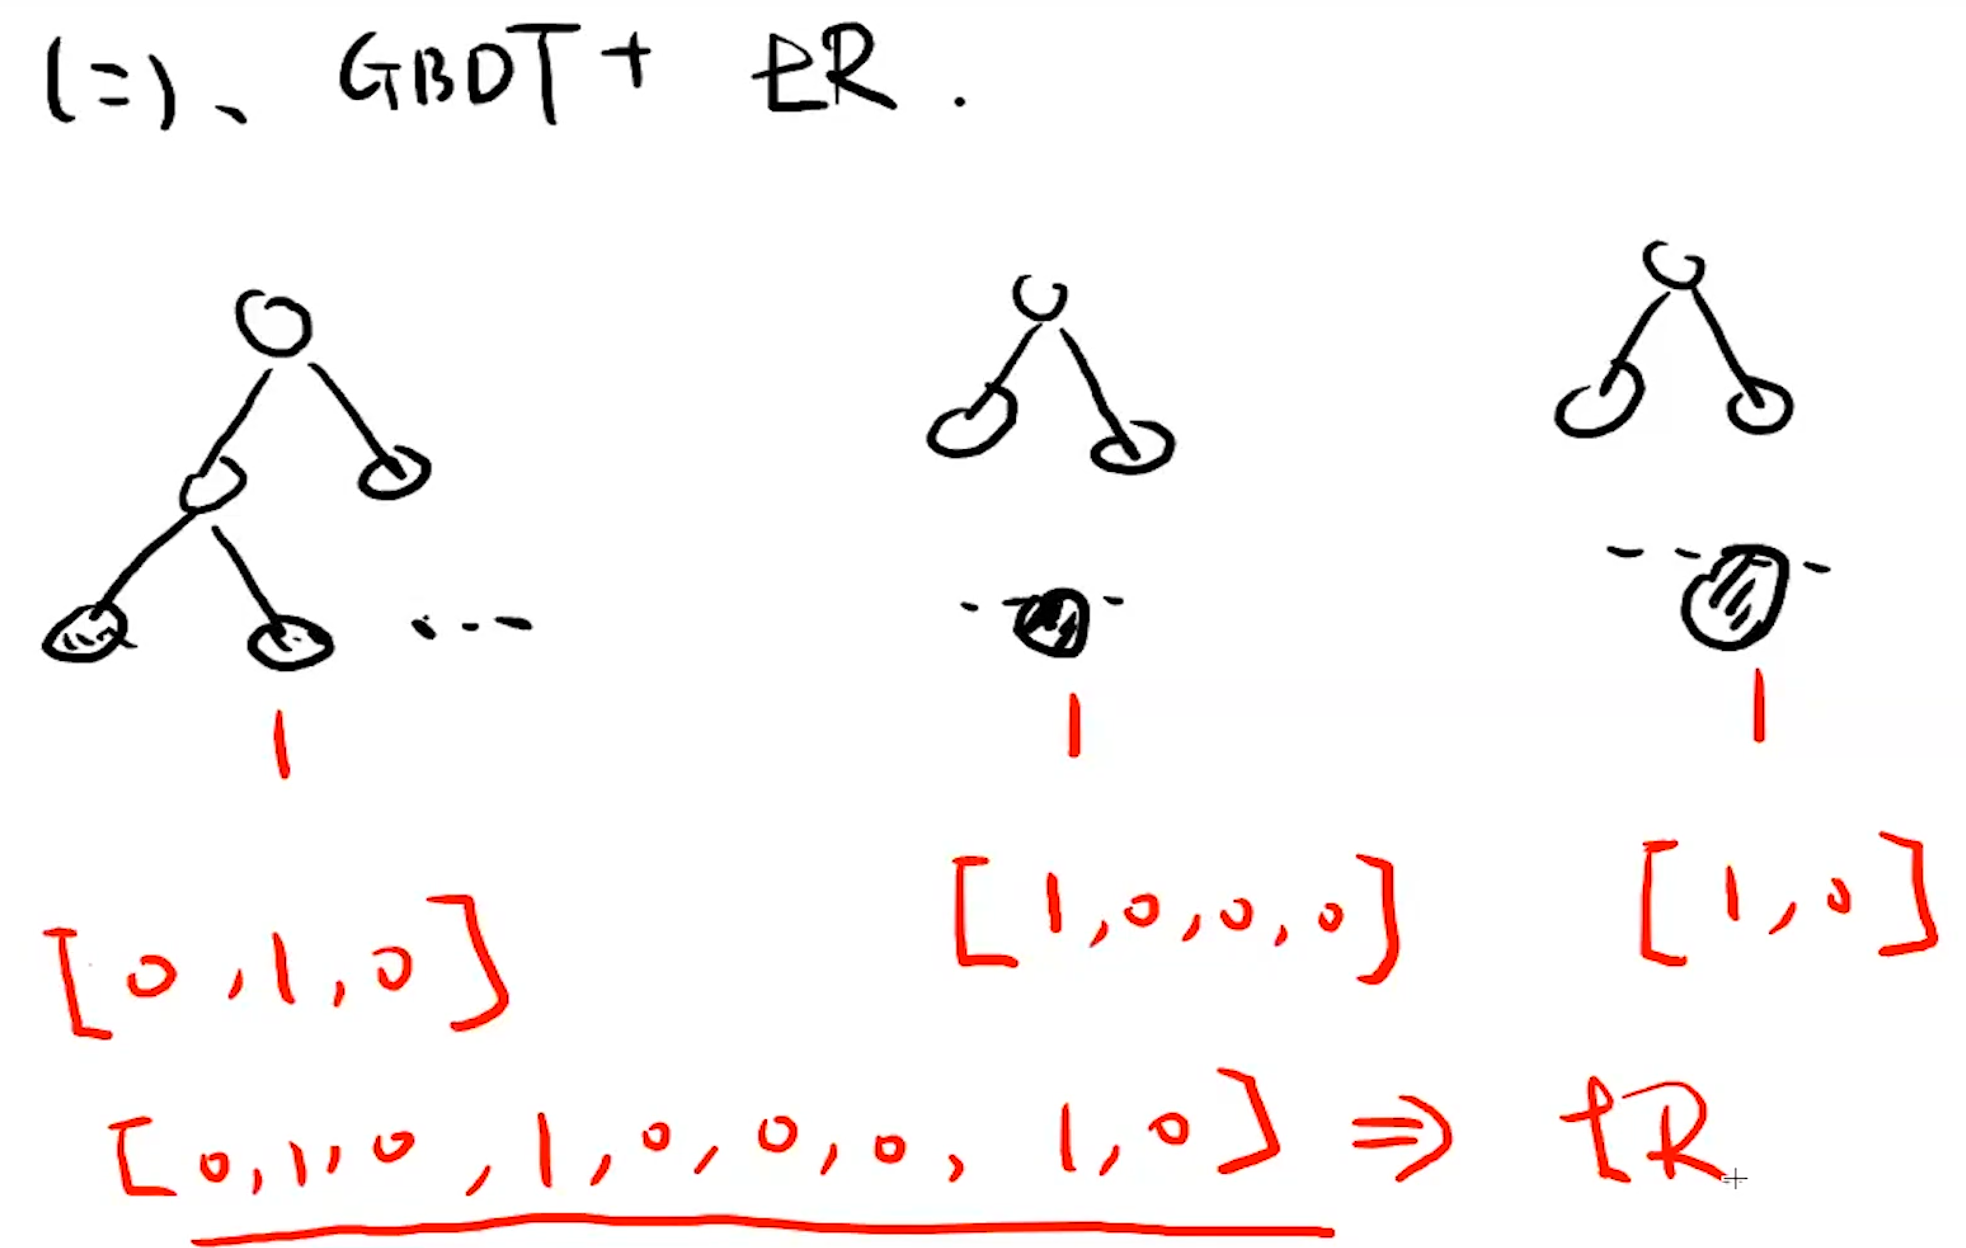 (二)、GBDT + LR.
1 1 1
[0,1,0] [1,0,0,0] [1,0]
[0,1,0,1,0,0,0,1,0] ⇒ LR